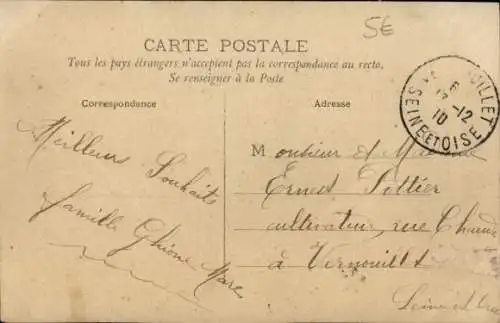 5€
CARTE POSTALE
Tous les pays étrangers n'acceptent pas la correspondance au recto.
Se renseigner à la Poste
Correspondance
Adresse
Meilleurs Souhaits
famille
Monsieur et Madame
Ernest Pottier
cultivateur, rue
à Vernouillet
Seine et Oise
SEINE ET OISE
6
-12
10